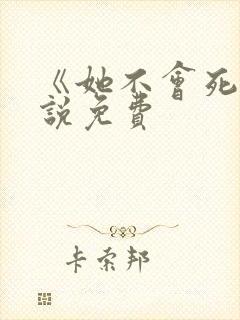 《她不會死
說免費
卡索邦